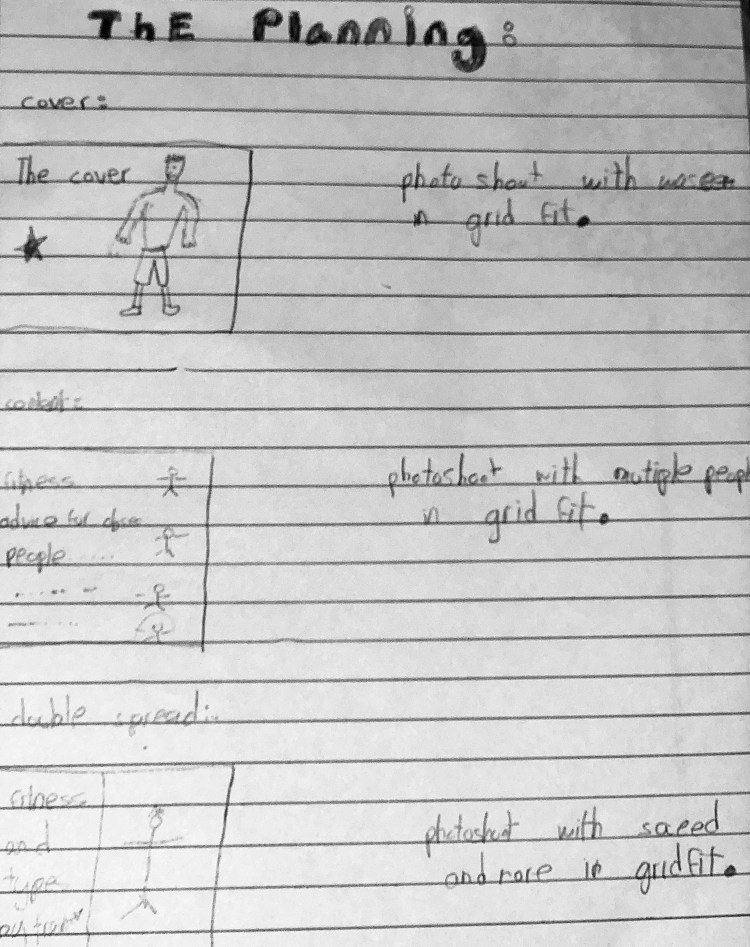 ThE Planning:
cover:
The cover
photo shout with
in grid fit.
content:
fitness
advice for obese
people ....
photoshoot with mutiple peopl
in grid fit.
duble spread:
fitness
and
type
photoshout with saeed
and more in gridfit.